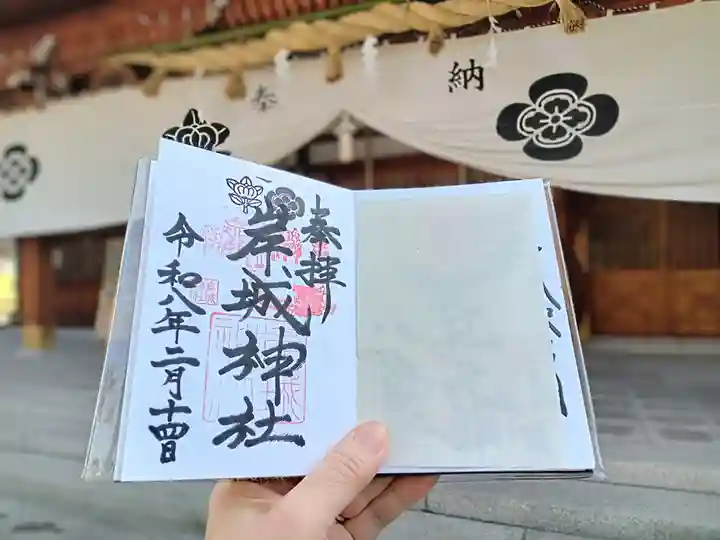 奉納
奉拝
岸城神社
令和八年二月十四日